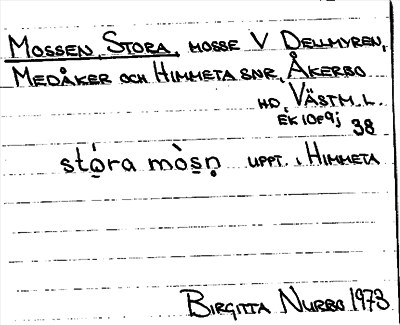 MOSSEN, STORA, MOSSE V DELLMYREN,
MEDÅKER OCH HIMMETA SNR, ÅKERBO
HD, VÄSTM. L.
EK 10e9j 38
stó̱ra mòs̱ṇ UPPT. I HIMMETA
BIRGITTA NURBO 1973